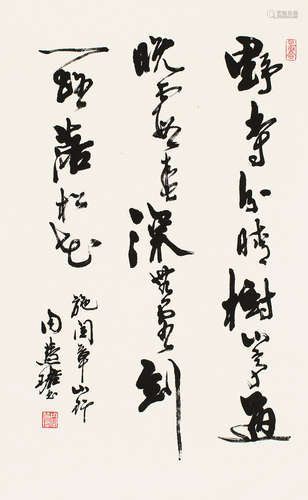 野寺分晴樹山亭過
晚霞春深無客到
一路落松花
施閏章山行
周慧珺书